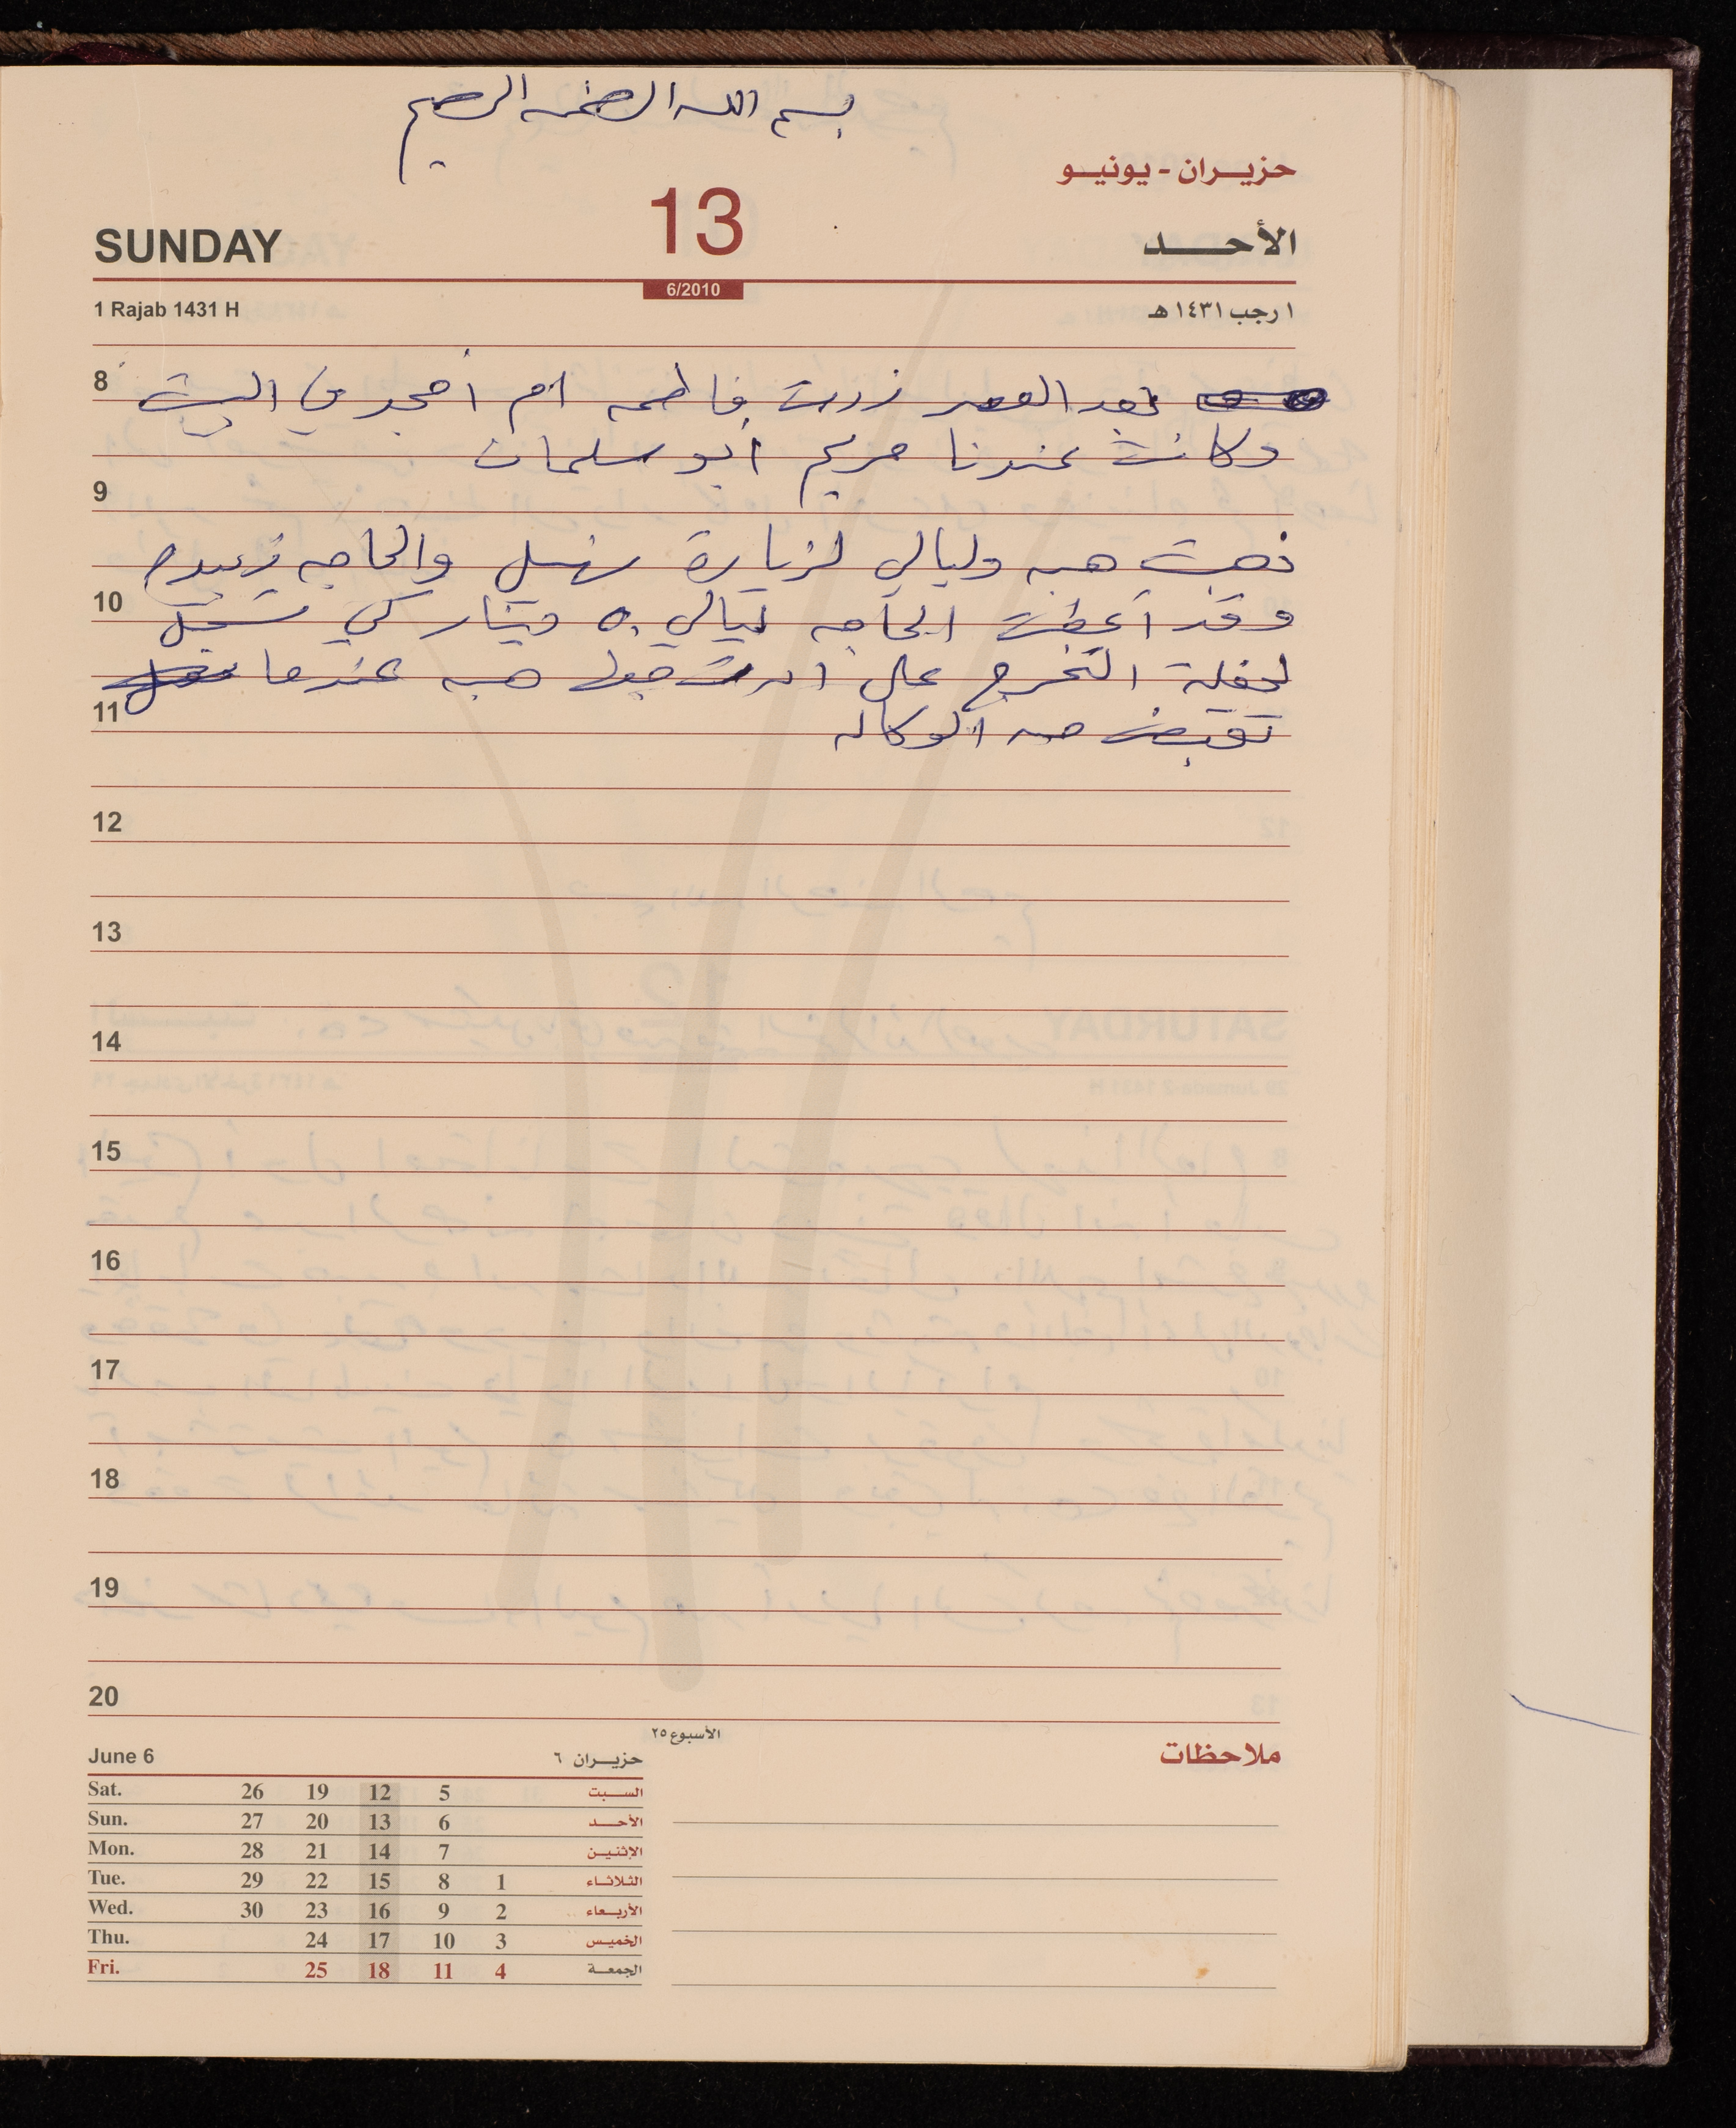 بسم الله الرحمن الرحيم
حزيران - يونيو
SUNDAY 13 الأحد
6/2010
1 Rajab 1431 H ١ رجب ١٤٣١ هـ
8 بعد العصر زرت فاطمه ام أمجد في البيت
وكانت عندنا مريم أبو سلمان
9
ذهبت هبه وليالي لزيارة والحاجه
10 وقد أعطت الحاجه ليالي ٥٠ دينار كي تسجل
لحفلة التخرج على ان هبه عندما
11 تقبض من الوكاله
12
13
14
15
16
17
18
19
20
الأسبوع ٢٥
June 6 حزيران ٦ ملاحظات
Sat. 26 19 12 5 السبت
Sun. 27 20 13 6 الأحد
Mon. 28 21 14 7 الإثنين
Tue. 29 22 15 8 1 الثلاثاء
Wed. 30 23 16 9 2 الأربعاء
Thu. 24 17 10 3 الخميس
Fri. 25 18 11 4 الجمعة